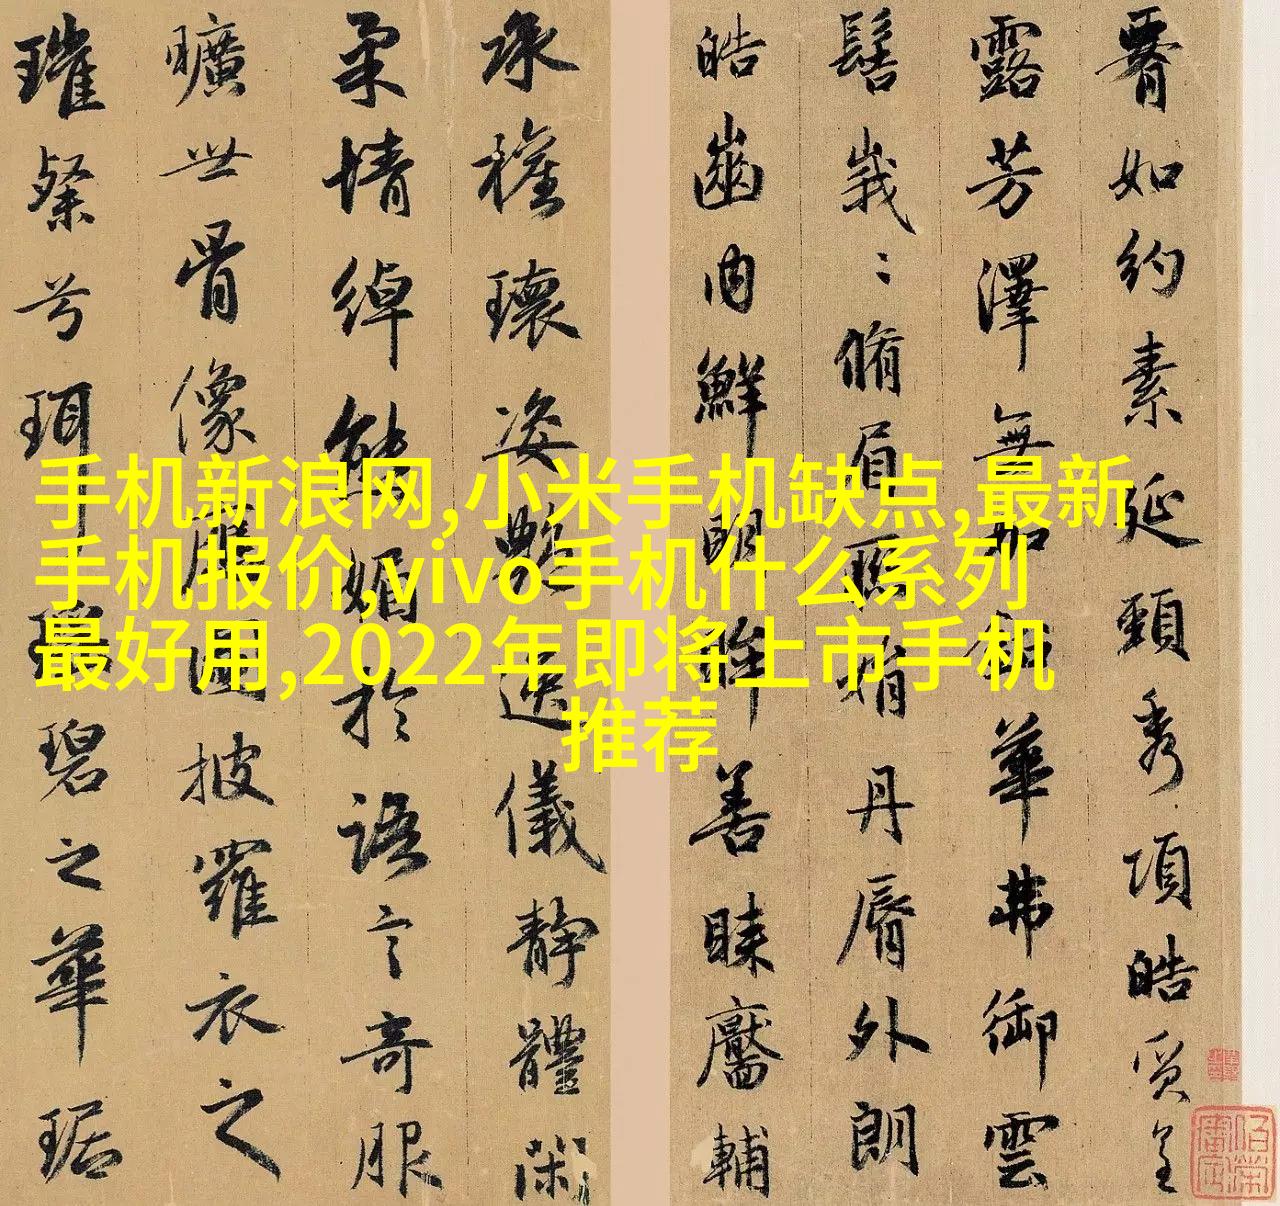 腰如約素延頸秀項皓質呈
露芳澤無加鉛華弗御雲
髻峩〻脩眉聯娟丹脣外朗
皓齒内鮮明眸善睞靨輔
承權瓌姿豔逸儀靜體閑
柔情綽態媚於語言奇服
曠世骨像應圖披羅衣之
璀粲兮珥瑤碧之華琚
手机新浪网,小米手机缺点,最新
手机报价,vivo手机什么系列
最好用,2022年即将上市手机
推荐